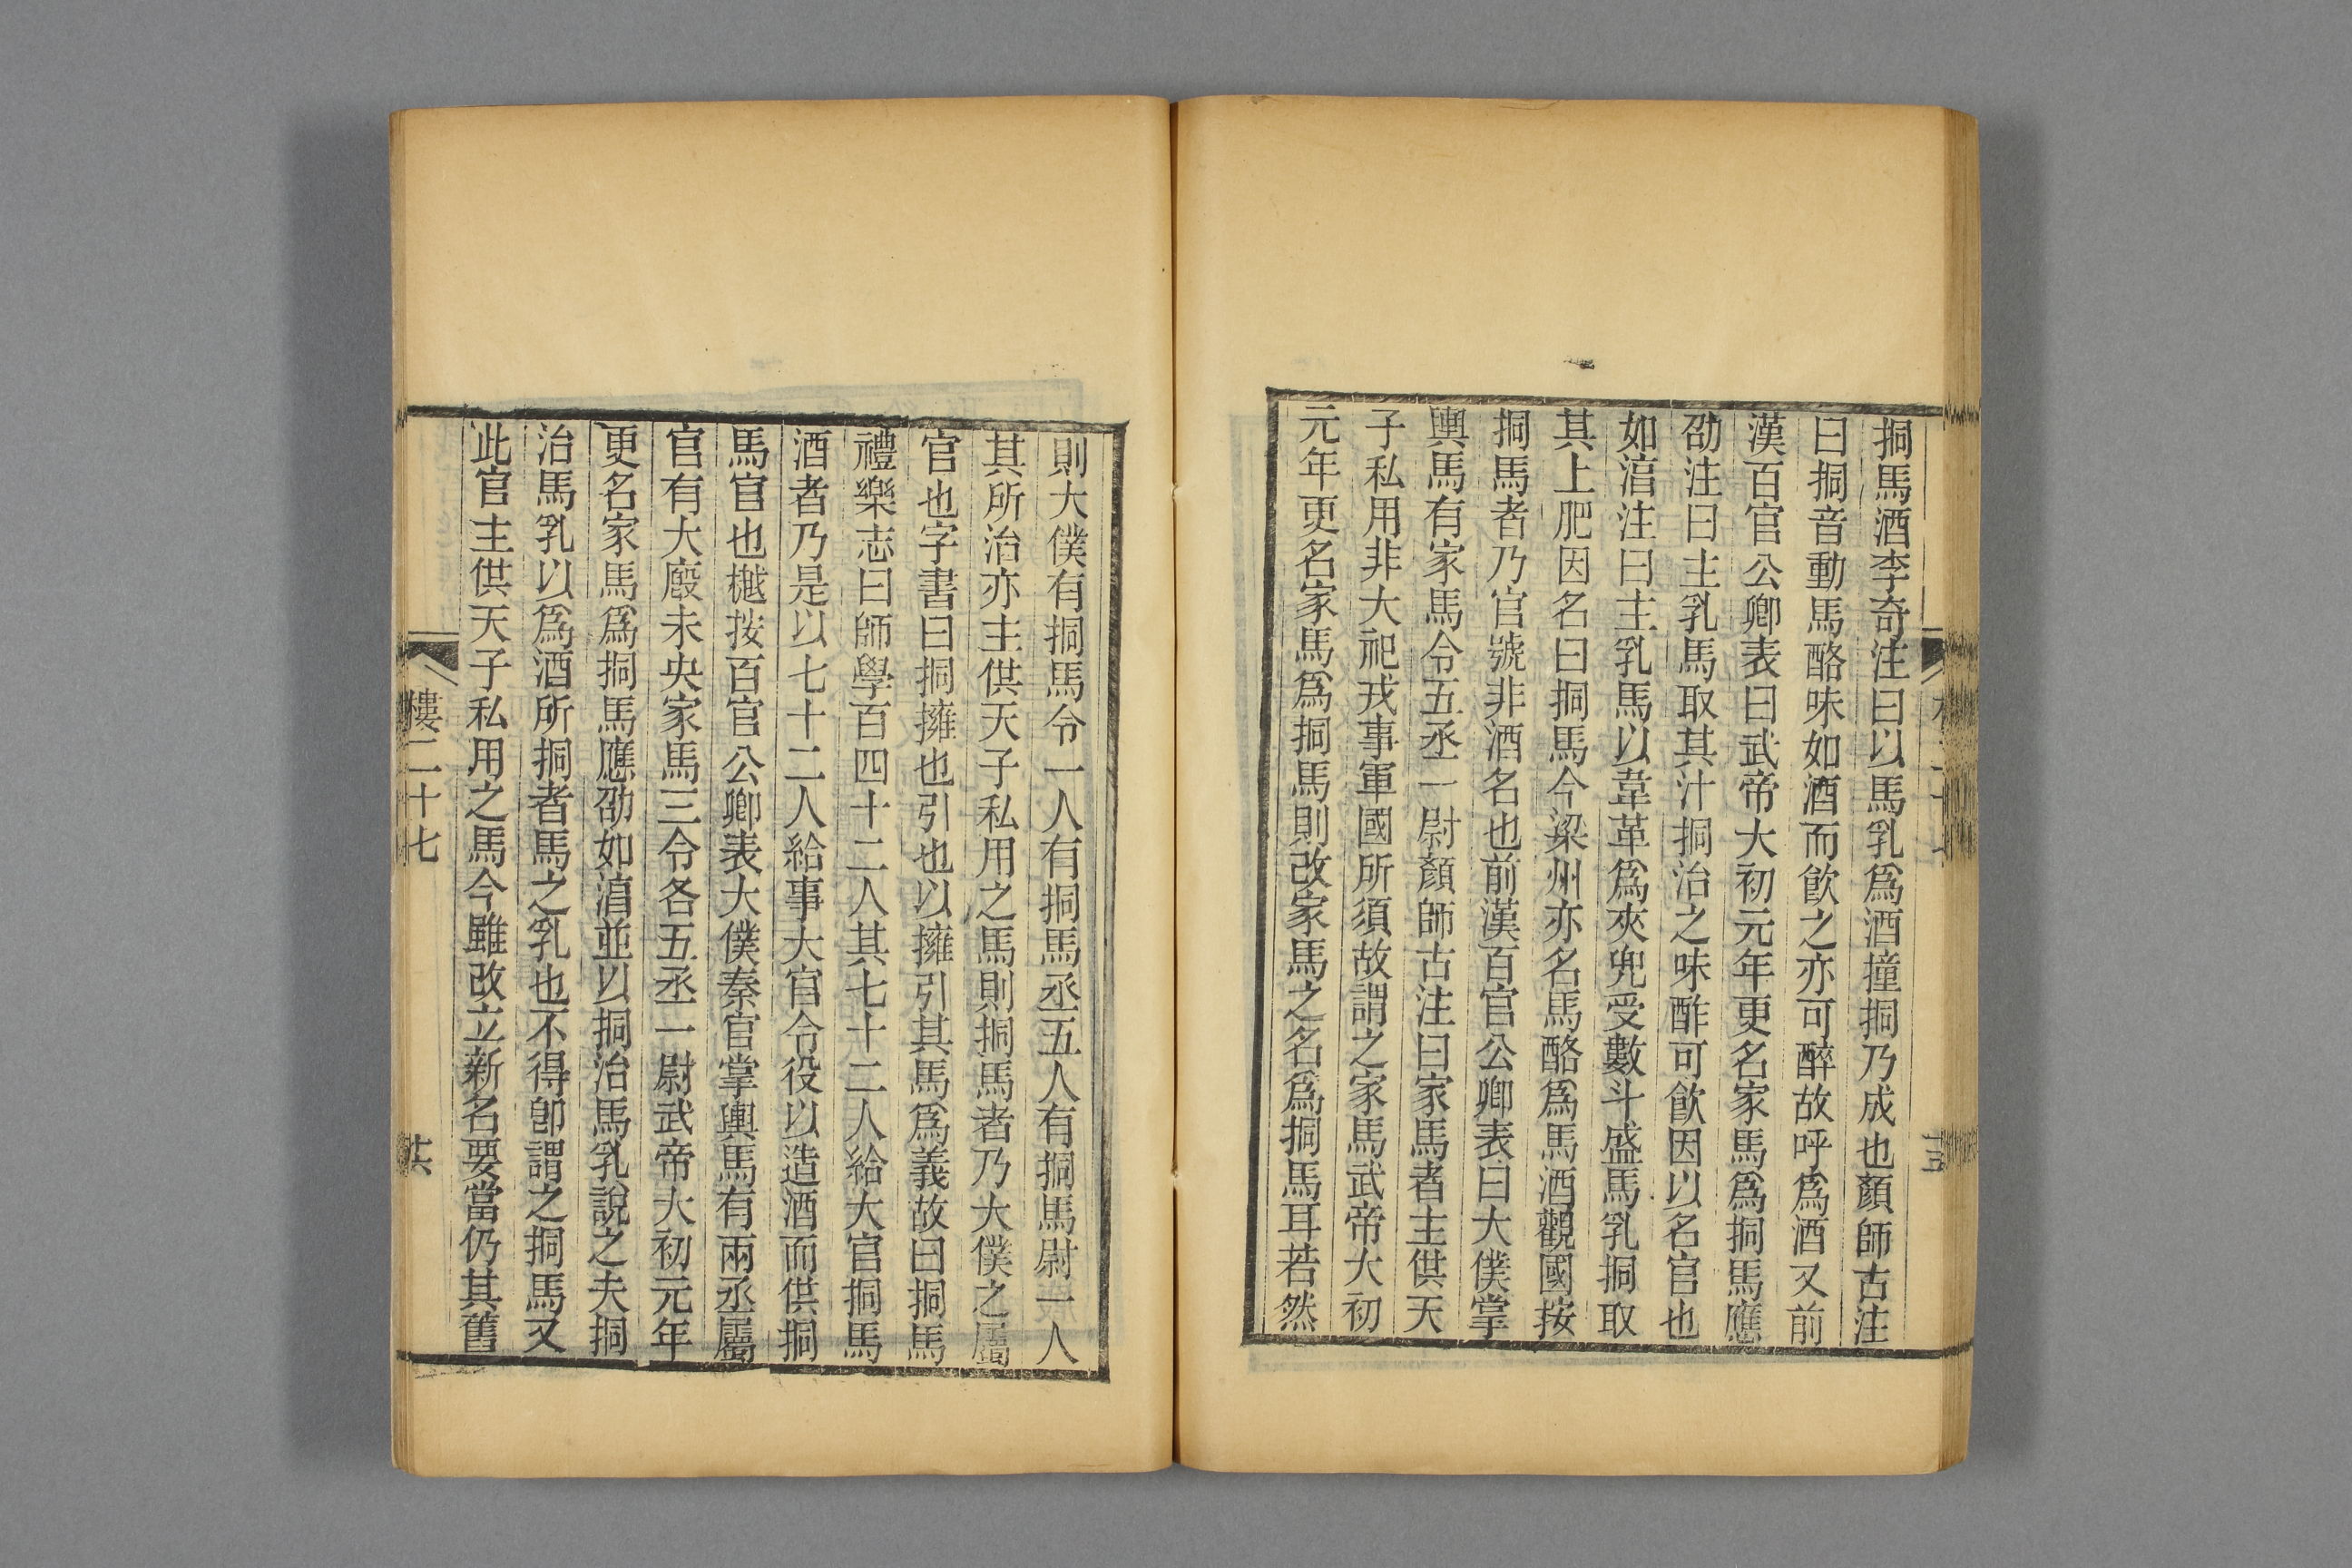 挏馬酒李奇注曰以馬乳爲酒撞挏乃成也顏師古注
曰挏音動馬酪味如酒而飲之亦可醉故呼爲酒又前
漢百官公卿表曰武帝大初元年更名家馬爲挏馬應
劭注曰主乳馬取其汁挏治之味酢可飲因以名官也
如淯注曰主乳馬以韋革爲夾兜受數斗盛馬乳挏取
其上肥因名曰挏馬今梁州亦名馬酪爲馬酒觀國按
挏馬者乃官號非酒名也前漢百官公卿表曰大僕掌
輿馬有家馬令五丞一尉顏師古注曰家馬者主供天
子私用非大祀戎事軍國所須故謂之家馬武帝大初
元年更名家馬爲挏馬則改家馬之名爲挏馬耳若然
則大僕有挏馬令一人有挏馬丞五人有挏馬尉一人
其所治亦主供天子私用之馬則挏馬者乃大僕之屬
官也字書曰挏擁也引也以擁引其馬爲義故曰挏馬
禮樂志曰師學百四十二人其七十二人給大官挏馬
酒者乃是以七十二人給事大官令役以造酒而供挏
馬官也樾按百官公卿表大僕秦官掌輿馬有兩丞屬
官有大廄未央家馬三令各五丞一尉武帝大初元年
更名家馬爲挏馬應劭如淯並以挏治馬乳說之夫挏
治馬乳以爲酒所挏者馬之乳也不得卽謂之挏馬又
此官主供天子私用之馬今雖改立新名要當仍其舊
樓二十七
共